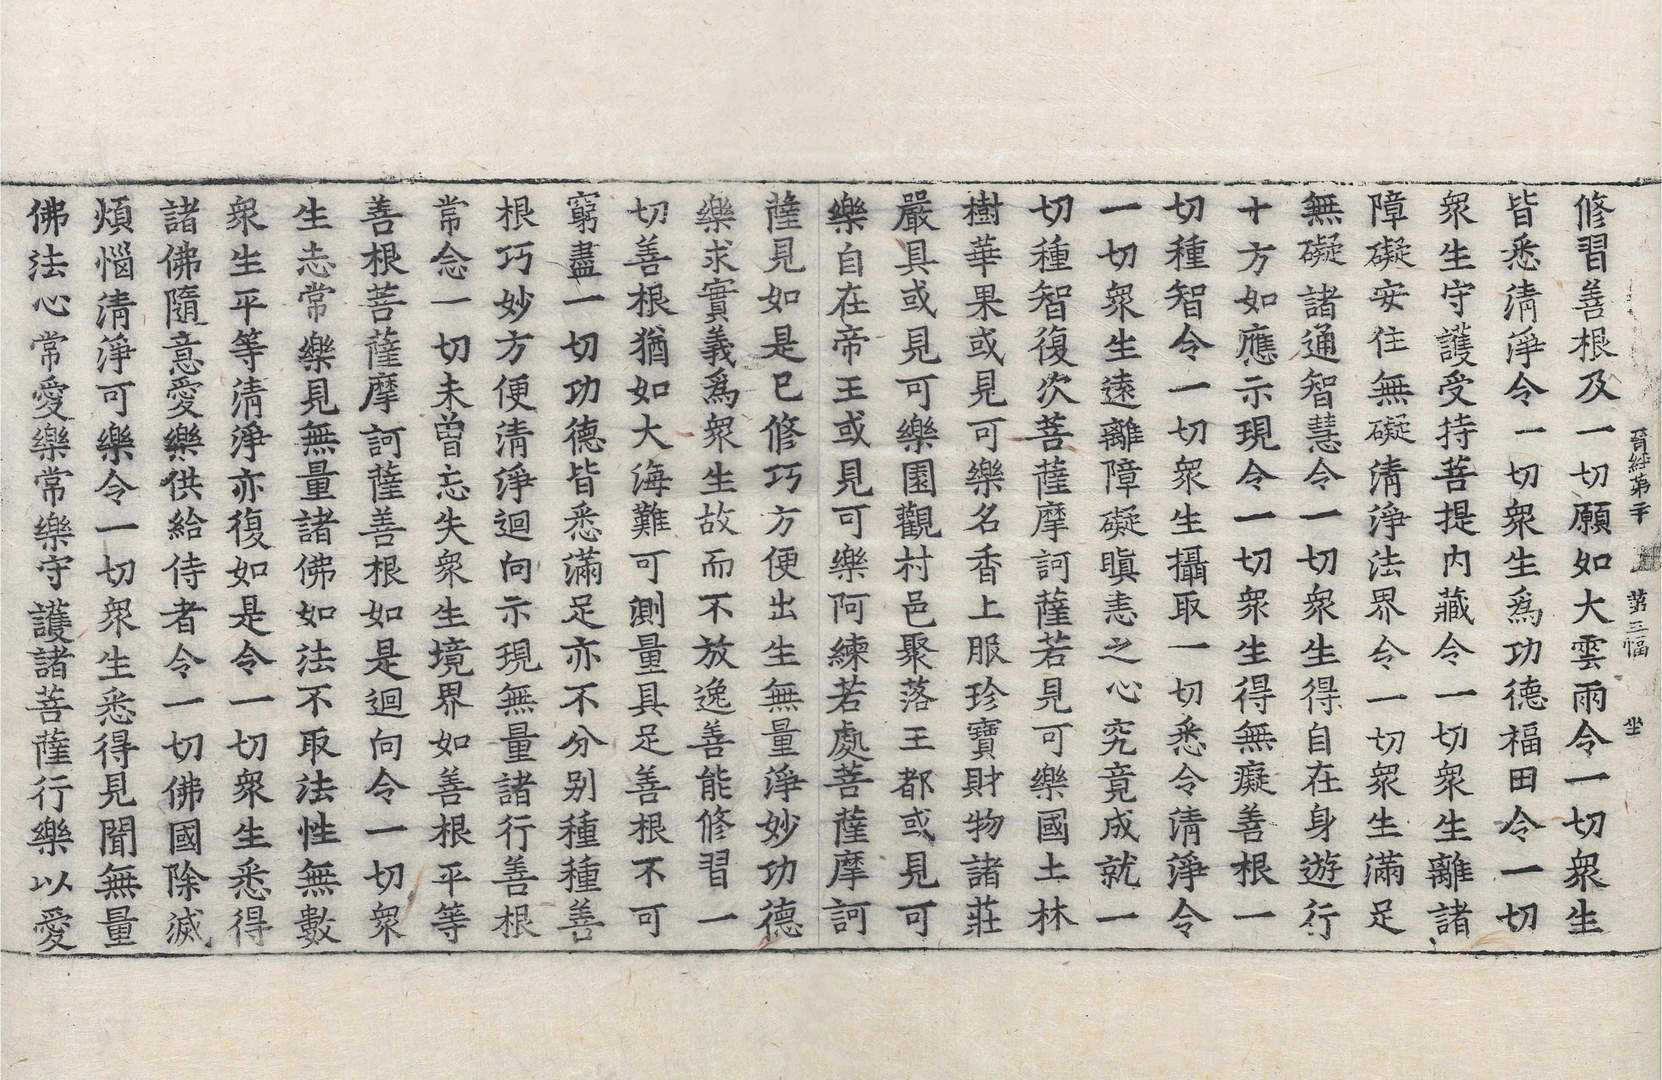 修習善根及一切願如大雲雨令一切衆生
皆悉清淨令一切衆生爲功德福田令一切
衆生守護受持菩提内藏令一切衆生離諸
障礙安住無礙清淨法界令一切衆生滿足
無礙諸通智慧令一切衆生得自在身遊行
十方如應示現令一切衆生得無癡善根一
切種智令一切衆生攝取一切悉令清淨令
一切衆生遠離障礙瞋恚之心究竟成就一
切種智復次菩薩摩訶薩若見可樂國土林
樹華果或見可樂名香上服珍寶財物諸莊
嚴具或見可樂園觀村邑聚落王都或見可
樂自在帝王或見可樂阿練若處菩薩摩訶
薩見如是已修巧方便出生無量淨妙功德
樂求實義爲衆生故而不放逸善能修習一
切善根猶如大海難可測量具足善根不可
窮盡一切功德皆悉滿足亦不分別種種善
根巧妙方便清淨迴向示現無量諸行善根
常念一切未曽忘失衆生境界如善根平等
善根菩薩摩訶薩善根如是迴向令一切衆
生志常樂見無量諸佛如法不取法性無數
衆生平等清淨亦復如是令一切衆生悉得
諸佛隨意愛樂供給侍者令一切佛國除滅
煩惱清淨可樂令一切衆生悉得見聞無量
佛法心常愛樂常樂守護諸菩薩行樂以愛
第三幅